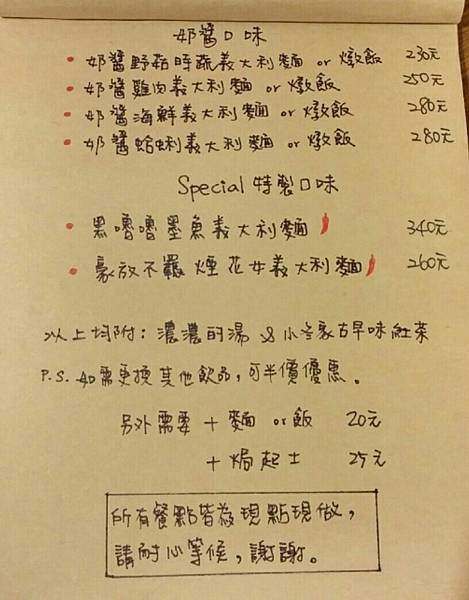 奶醬口味
奶醬野菇時蔬義大利麵 or 燉飯 230元
奶醬雞肉義大利麵 or 燉飯 250元
奶醬海鮮義大利麵 or 燉飯 280元
奶醬蛤蜊義大利麵 or 燉飯 280元
Special 特製口味
黑嚕嚕墨魚義大利麵 340元
豪放不羈煙花女義大利麵 260元
以上均附：濃濃的湯 & 小安家古早味紅茶
P.S. 如需更換其他飲品，可半價優惠。
另外需要 + 麵 or 飯 20元
+ 焗起士 25元
所有餐點皆為現點現做，
請耐心等候，謝謝。